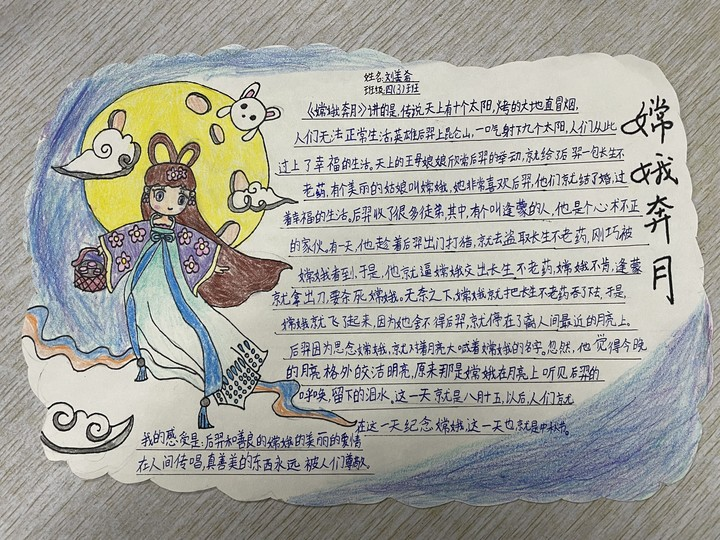 姓名:刘姜睿
班级:四(3)班
嫦娥奔月
《嫦娥奔月》讲的是,传说天上有十个太阳,烤的大地直冒烟,
人们无法正常生活,英雄后羿上昆仑山,一口气射下九个太阳,人们从此
过上了幸福的生活。天上的王母娘娘欣常后羿的举动,就给了后羿一包长生不
老药,有个美丽的姑娘叫嫦娥,她非常喜欢后羿,他们就结了婚,过
着幸福的生活。后羿收了很多徒弟,其中,有个叫逢蒙的人,他是个心术不正
的家伙,有一天,他趁着后羿出门打猎,就去盗取长生不老药,刚巧被
嫦娥看到,于是,他就逼嫦娥交出长生不老药,嫦娥不肯,逢蒙
就拿出刀要杀死嫦娥。无奈之下,嫦娥就把长生不老药吞了下去,于是,
嫦娥就飞了起来,因为她舍不得后羿,就停在了离人间最近的月亮上。
后羿因为思念嫦娥,就对着月亮大喊着嫦娥的名字。忽然,他觉得今晚
的月亮格外的洁明亮,原来那是嫦娥在月亮上听见后羿的
呼唤,留下的泪水,这一天就是八月十五,以后,人们就
在这一天纪念嫦娥,这一天也就是中秋节。
我的感受是:后羿和善良的嫦娥的美丽的爱情
在人间传唱,真善美的东西永远被人们尊敬。